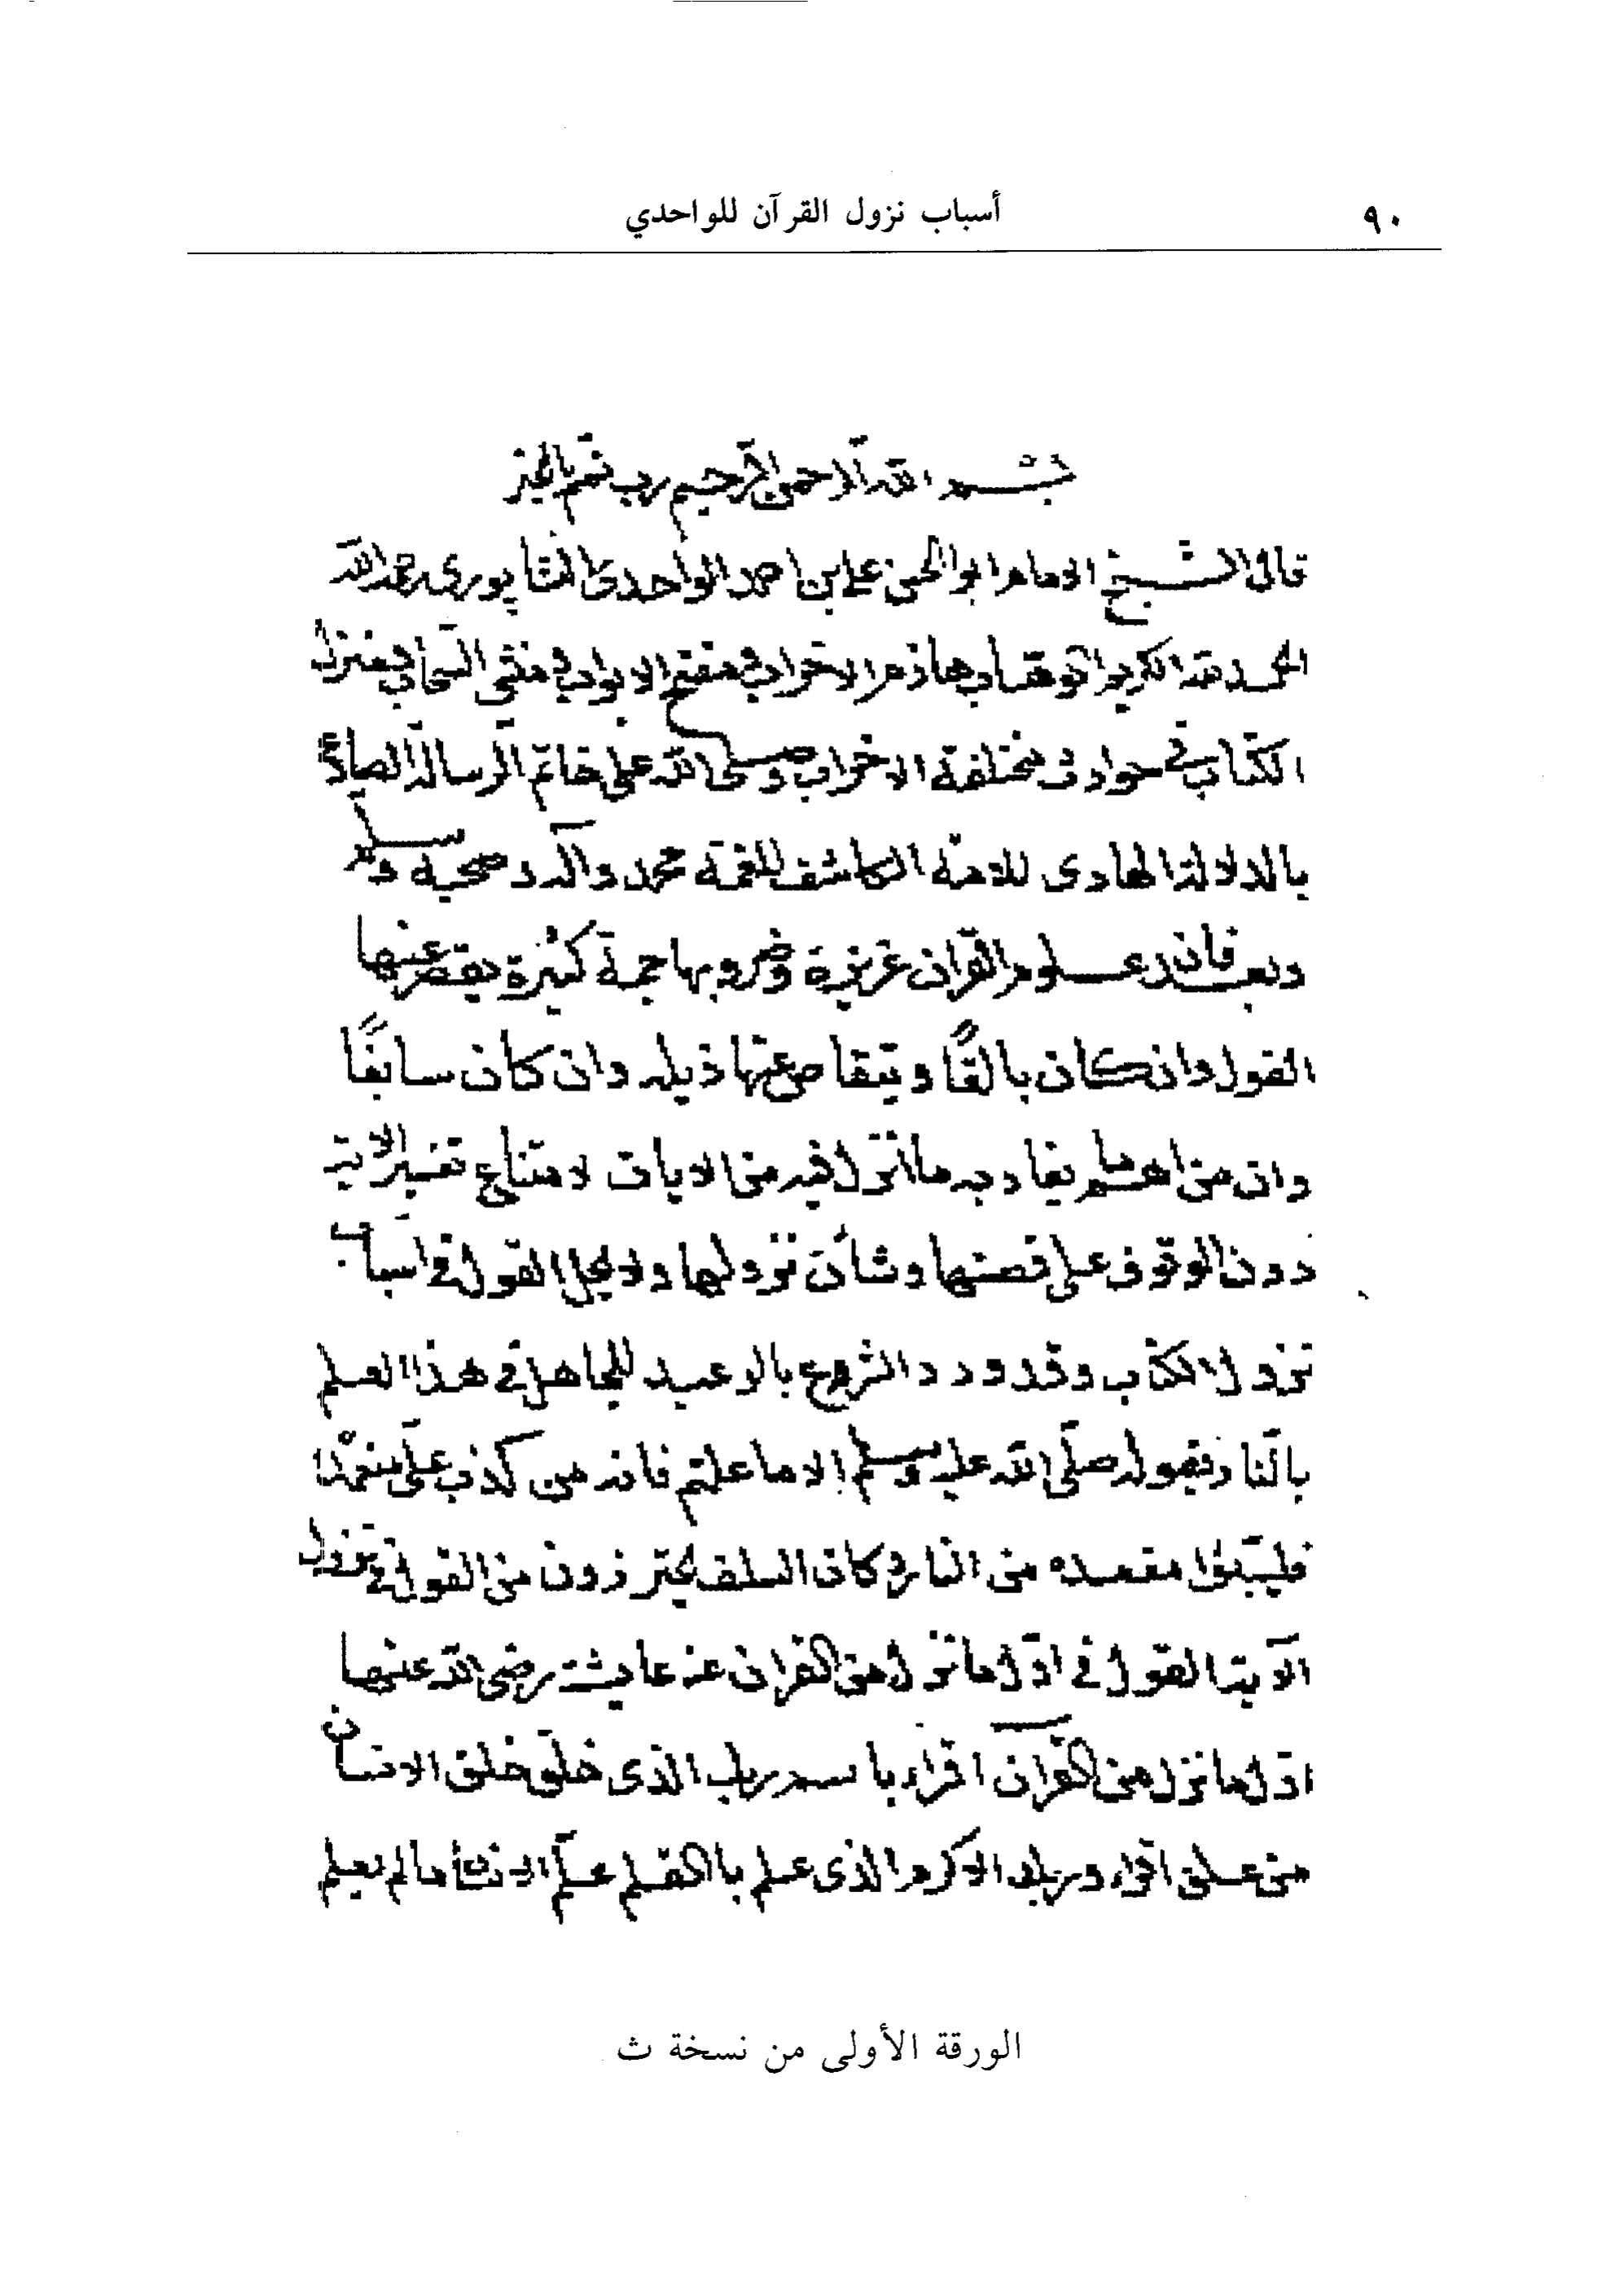 ٩٠
أسباب نزول القرآن للواحدي
بسم الله الرحمن الرحيم رب تمم بالخير
قال الشيخ الامام ابو الحسن علي بن احمد الواحدي النيسابوري رحمه الله
الحمد لله الكريم الوهاب هازم الاحزاب ومفتح الابواب ومنشى السحاب ومنزل
الكتاب في حوادث مختلفة الاسباب وصلى الله على خاتم الرسالة
بالدلالة الهادى للامة الكاشف للغمة محمد وآله وصحبه وسلم
وبعد فان علوم القران غزيرة وضروبها جمة كثيرة يقصر عنها
القول وان كان بالغًا ويتقاصر عنها ذيله وان كان سابغًا
وان من اهم ما يعاد به ما انزل فيه من الايات لامتناع تفسير الاية
دون الوقوف على قصتها وشأن نزولها ولا يحل القول في اسباب
نزول الكتاب وقد ورد الشروع بالوعيد للجاهل في هذا العلم
بالنار فيقوله صلى الله عليه وسلم الا ما علمتم فانه من كذب على متعمدا
فليتبوا مقعده من النار وكان السلف يحترزون من القول في نزول
الآية القول في اول ما نزل من القران عن عايشة رضى الله عنها
اول ما نزل من القرآن اقراء باسم ربك الذى خلق خلق الانسان
من علق اقراء وربك الاكرم الذى علم بالقلم علم الانسان ما لم يعلم
الورقة الأولى من نسخة ث